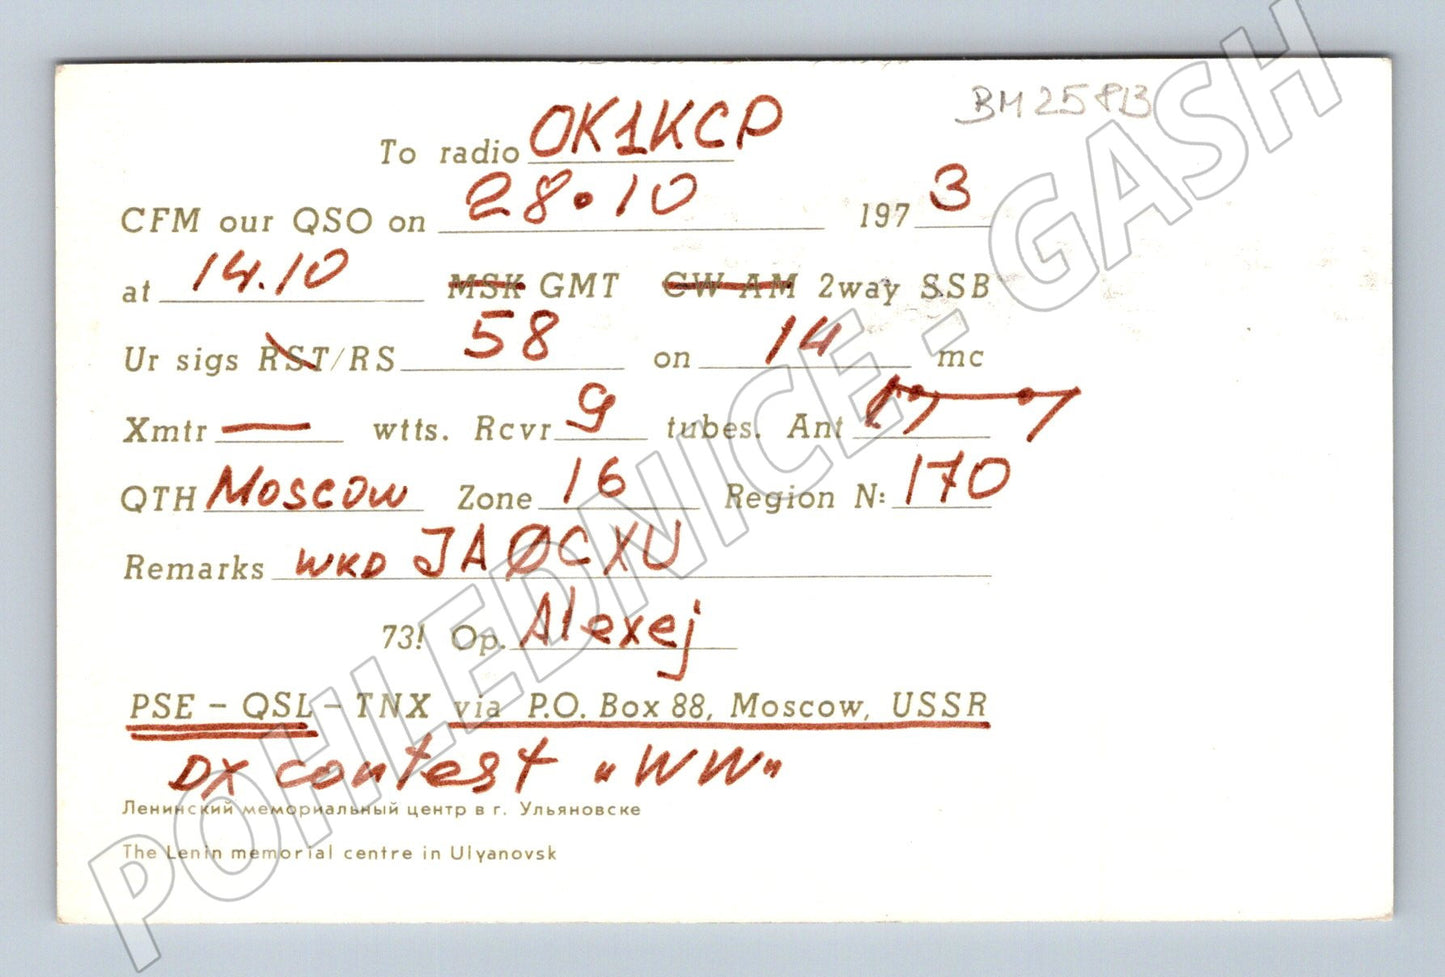 BM25813
To radio OK1KCP
CFM our QSO on 28.10 1973
at 14.10 MSK GMT CW AM 2way SSB
Ur sigs RST/RS 58 on 14 mc
Xmtr — wtts. Rcvr 9 tubes. Ant
QTH Moscow Zone 16 Region N: 170
Remarks WKD JAØCXU
73! Op. Alexej
PSE – QSL – TNX via P.O. Box 88, Moscow, USSR
DX contest "WW"
Ленинский мемориальный центр в г. Ульяновске
The Lenin memorial centre in Ulyanovsk
POHLEDNICE - GASH